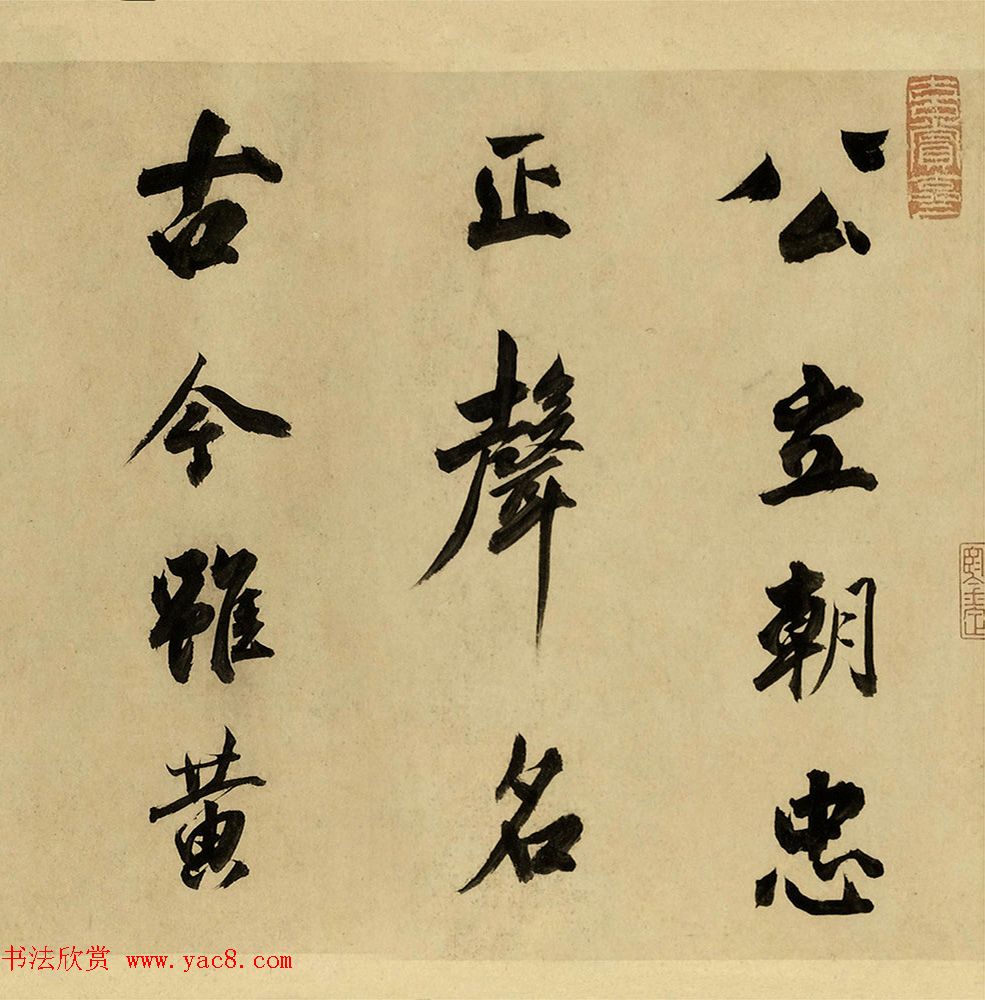 公立朝忠
正聲名
古今雖黄
书法欣赏 www.yac8.com